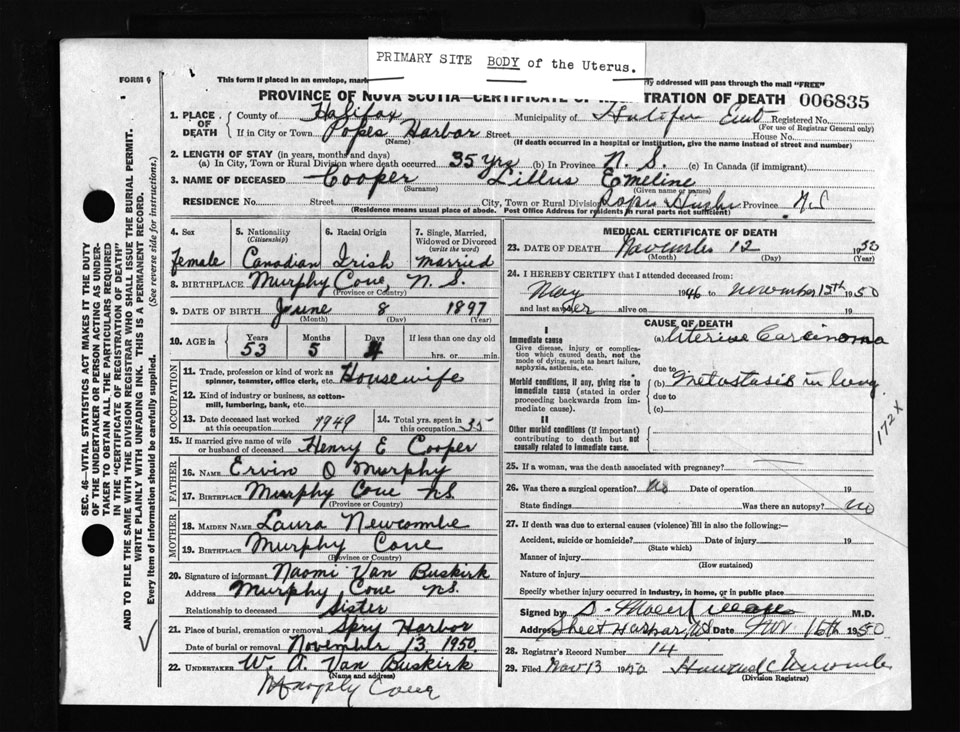 PRIMARY SITE BODY of the Uterus.
FORM 6
This form if placed in an envelope, mark
rly addressed will pass through the mail "FREE"
PROVINCE OF NOVA SCOTIA—CERTIFICATE OF REGISTRATION OF DEATH 006835
1. PLACE OF DEATH County of Halifax Municipality of Halifax East Registered No.
(For use of Registrar General only)
If in City or Town Popes Harbor Street House No.
(Name) (If death occurred in a hospital or institution, give the name instead of street and number)
2. LENGTH OF STAY (in years, months and days)
(a) In City, Town or Rural Division where death occurred 35 yrs (b) In Province N. S. (c) In Canada (if immigrant)
3. NAME OF DECEASED Cooper Lillus Emeline
(Surname) (Given name or names)
RESIDENCE No. Street City, Town or Rural Division Province N S
(Residence means usual place of abode. Post Office Address for residents in rural parts not sufficient)
4. Sex 5. Nationality (Citizenship) 6. Racial Origin 7. Single, Married, Widowed or Divorced (write the word)
female Canadian Irish married
8. BIRTHPLACE Murphy Cove, N. S.
(Province or Country)
9. DATE OF BIRTH June 8 1897
(Month) (Day) (Year)
10. AGE in Years Months Days If less than one day
53 5 4 hrs. or min.
OCCUPATION
11. Trade, profession or kind of work as spinner, teamster, office clerk, etc. Housewife
12. Kind of industry or business, as cotton-mill, lumbering, bank, etc.
13. Date deceased last worked at this occupation 1949 14. Total yrs. spent in this occupation 35
15. If married give name of wife or husband of deceased Henry E Cooper
FATHER
16. NAME Ervin O Murphy
17. BIRTHPLACE Murphy Cove NS.
(Province or Country)
MOTHER
18. MAIDEN NAME Laura Newcombe
19. BIRTHPLACE Murphy Cove
(Province or Country)
20. Signature of informant Naomi Van Buskirk
Address Murphy Cove NS.
Relationship to deceased Sister
21. Place of burial, cremation or removal Spry Harbor
Date of burial or removal November 13 1950.
22. UNDERTAKER W. A. Van Buskirk
(Name and address)
Murphy Cove
MEDICAL CERTIFICATE OF DEATH
23. DATE OF DEATH November 12 1950
(Month) (Day) (Year)
24. I HEREBY CERTIFY that I attended deceased from:
May 1946 to November 12th 1950
and last saw her alive on 19
CAUSE OF DEATH
I
Immediate cause (a) Uterine Carcinoma
Give disease, injury or complication which caused death, not the mode of dying, such as heart failure, asphyxia, asthenia, etc.
due to
Morbid conditions, if any, giving rise to immediate cause (stated in order proceeding backwards from immediate cause).
(b) Metastasis in lung
due to
(c)
II
Other morbid conditions (if important) contributing to death but not causally related to immediate cause.
172X
25. If a woman, was the death associated with pregnancy?
26. Was there a surgical operation? No Date of operation 19
State findings Was there an autopsy? no
27. If death was due to external causes (violence) fill in also the following:—
Accident, suicide or homicide? Date of injury 19
(State which)
Manner of injury
(How sustained)
Nature of injury
Specify whether injury occurred in industry, in home, or in public place
Signed by M.D.
Address Sheet Harbor, NS Date Nov 16th 1950
28. Registrar's Record Number 14
29. Filed Nov 13 1950 Howard C Newcombe
(Division Registrar)
SEC. 46—VITAL STATISTICS ACT MAKES IT THE DUTY
OF THE UNDERTAKER OR PERSON ACTING AS UNDER-
TAKER TO OBTAIN ALL THE PARTICULARS REQUIRED
IN THE "CERTIFICATE OF REGISTRATION OF DEATH"
AND TO FILE THE SAME WITH THE DIVISION REGISTRAR WHO SHALL ISSUE THE BURIAL PERMIT.
WRITE PLAINLY WITH UNFADING INK. THIS IS A PERMANENT RECORD.
Every item of information should be carefully supplied. (See reverse side for instructions.)